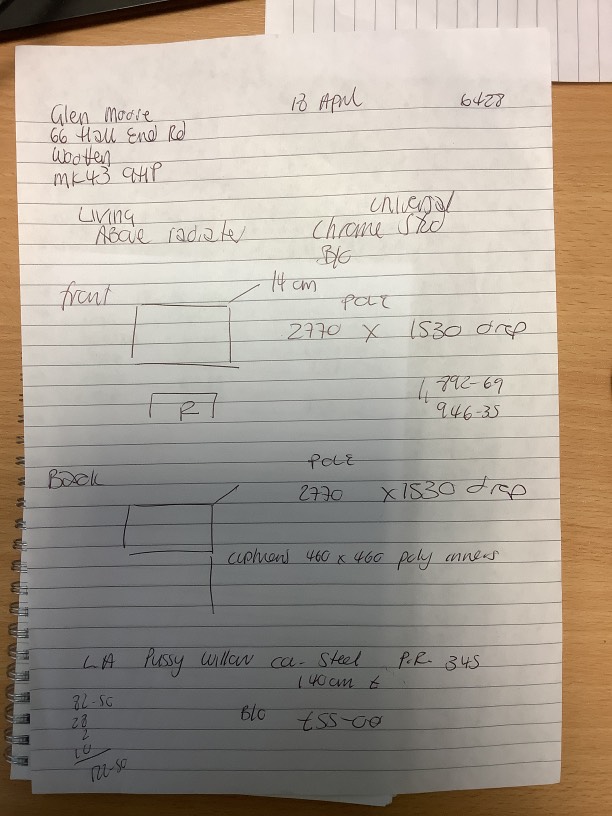 18 April 6428
Glen Moore
66 Hall End Rd
Wootten
MK43 9HP
Living
Above radiater
universal
Chrome Std
B/O
front
14 cm
pole
2770 x 1530 drop
1,892-69
946-35
R
Back
pole
2770 x 1530 drop
cushions 460 x 460 poly inners
LA Pussy Willow Steel P.R. 345
140cm
B/O £55-00
82-50
28
2
10
122-50